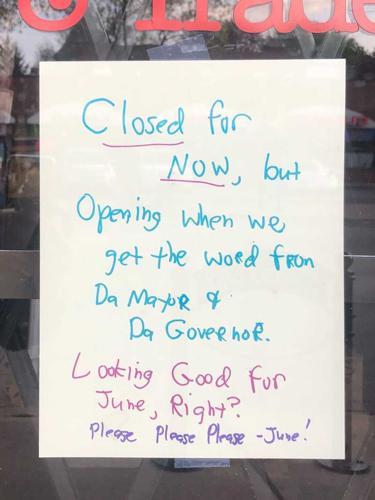 & Trade
Closed for
NOW, but
Opening when we
get the word from
Da Mayor &
Da Governor.
Looking Good for
June, Right?
Please Please Please - June!